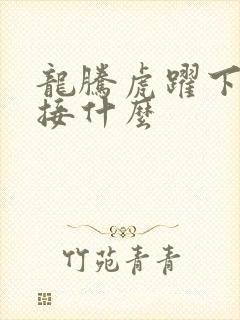 龍騰虎躍下
接什麼
竹苑青青